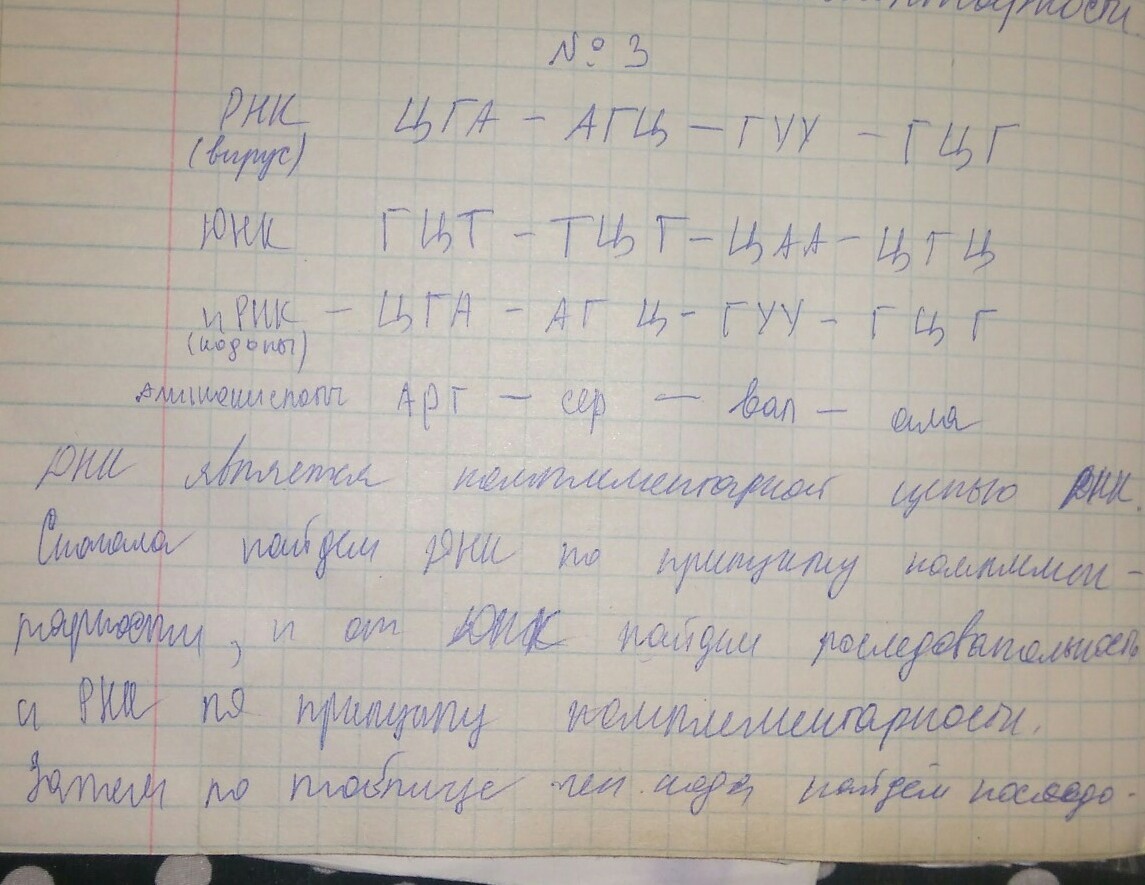 № 3
РНК ЦГА – АГЦ – ГУУ – ГЦГ
(вирус)
ДНК ГЦТ – ТЦГ – ЦАА – ЦГЦ
иРНК – ЦГА – АГЦ – ГУУ – ГЦГ
(кодоны)
Аминокислоты АРГ – сер – вал – ала
ДНК является комплементарной цепью РНК.
Сначала найдем ДНК по принципу комплимен-
тарности, и от ДНК найдем последовательность
и РНК по принципу комплементарности.
Затем по таблице ген. кода найдём последо-